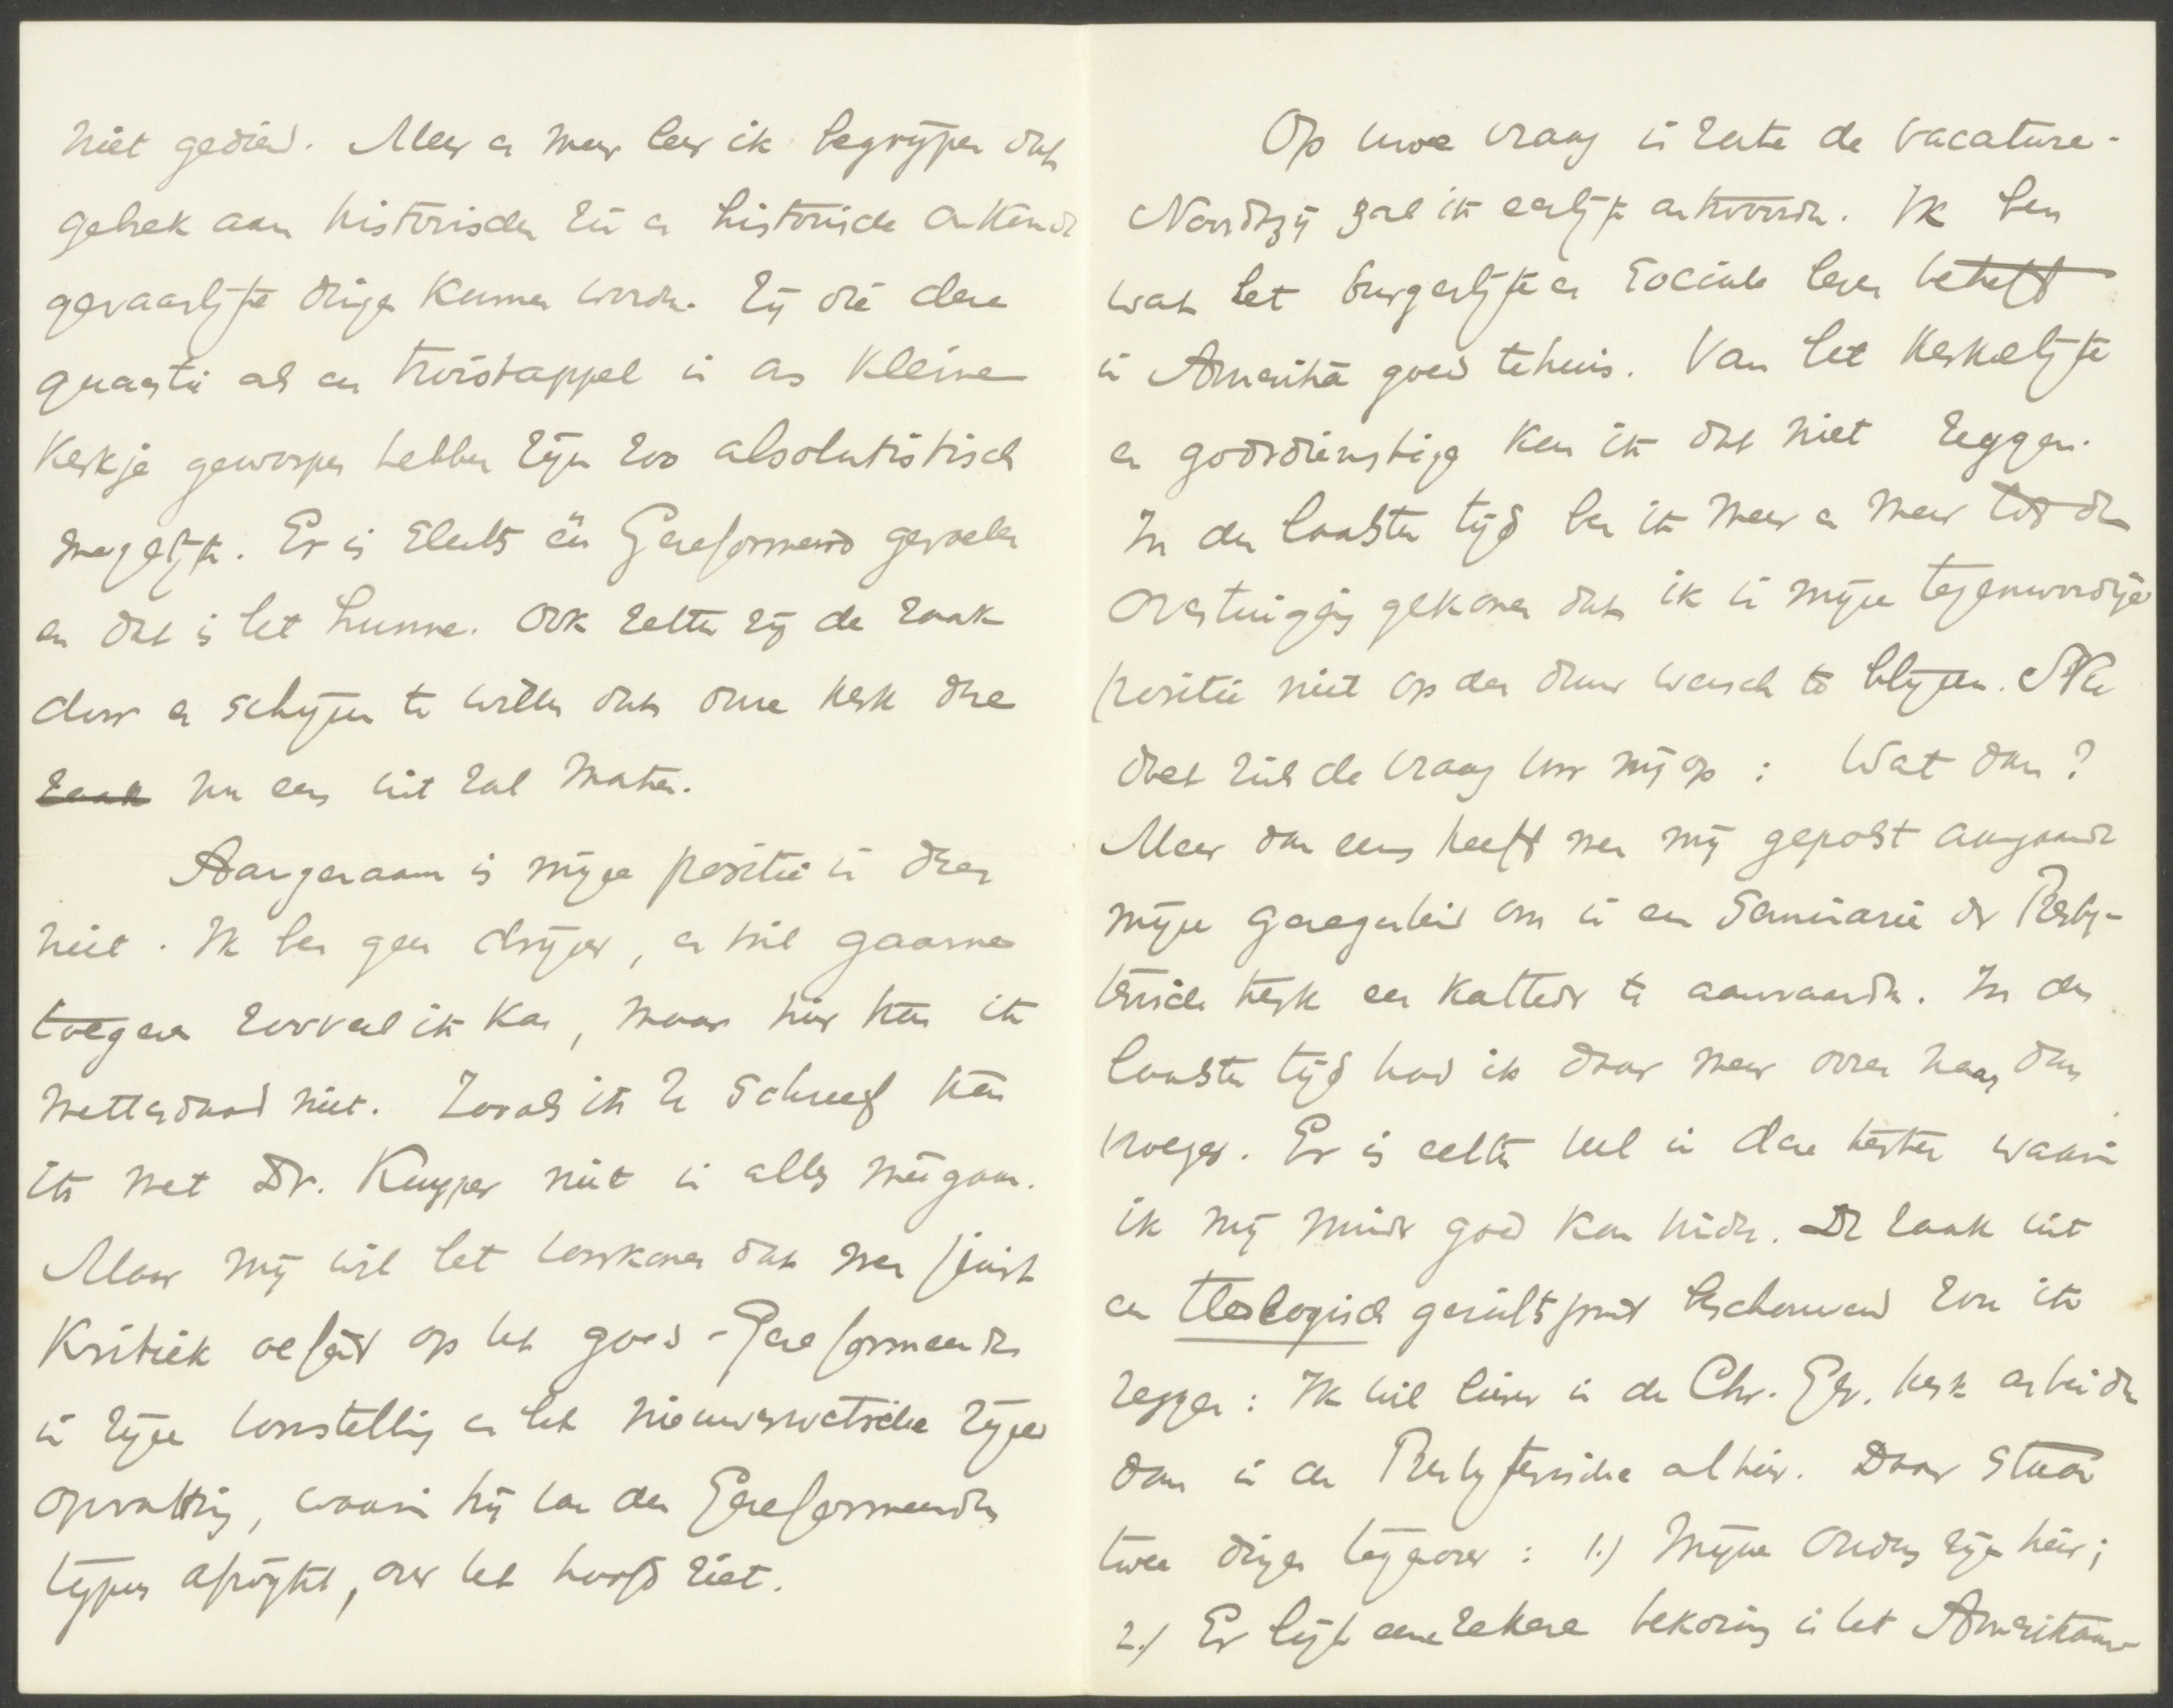 niet gediend. Meer en meer leer ik begrijpen dat
gebrek aan historischen zin en historische onkunde
gevaarlijke dingen kunnen worden. Zij die deze
quaestie als een twistappel in ons kleine
Kerkje geworpen hebben zijn zoo absolutistisch
mogelijk. Er is slechts één Gereformeerd gevoelen
en dat is het hunne. Ook zetten zij de zaak
door en schijnen te willen dat onze kerk deze
zaak nu eens uit zal maken.
Aangenaam is mijne positie in dezen
niet. Ik ben geen drijver, en wil gaarne
toegeven zooveel ik kan, maar hier kan ik
metterdaad niet. Zooals ik U schreef kan
ik met Dr. Kuyper niet in alles meegaan.
Maar mij wil het voorkomen dat men juist
Kritiek oefent op het goed-Gereformeerde
in zijne voorstelling en het nieuwerwetsche zijner
opvatting, waarin hij van den Gereformeerden
typus afwijkt, over het hoofd ziet.
Op uwe vraag in zake de vacature-
Noordtzij zal ik eerlijk antwoorden. Ik ben
wat het burgerlijke en sociale leven betreft
in Amerika goed tehuis. Van het Kerkelijke
en godsdienstige kan ik dat niet zeggen.
In den laatsten tijd ben ik meer en meer tot de
overtuiging gekomen dat ik in mijne tegenwoordige
positie niet op den duur wensch te blijven. Nu
doet zich de vraag voor mij op: Wat dan?
Meer dan eens heeft men mij gepolst aangaande
mijne genegenheid om in een Seminarie der Presby-
terische kerk een Katheder te aanvaarden. In den
laatsten tijd had ik daar meer ooren naar dan
vroeger. Er is echter veel in deze kerken waarin
ik mij minder goed kan vinden. De zaak uit
een theologisch gezichtspunt beschouwend zou ik
zeggen: Ik wil liever in de Chr. Ger. kerk arbeiden
dan in de Presbyterische alhier. Daar staan
twee dingen tegenover: 1.) Mijne Ouders zijn hier;
2.) Er ligt eene zekere bekoring in het Amerikaan-